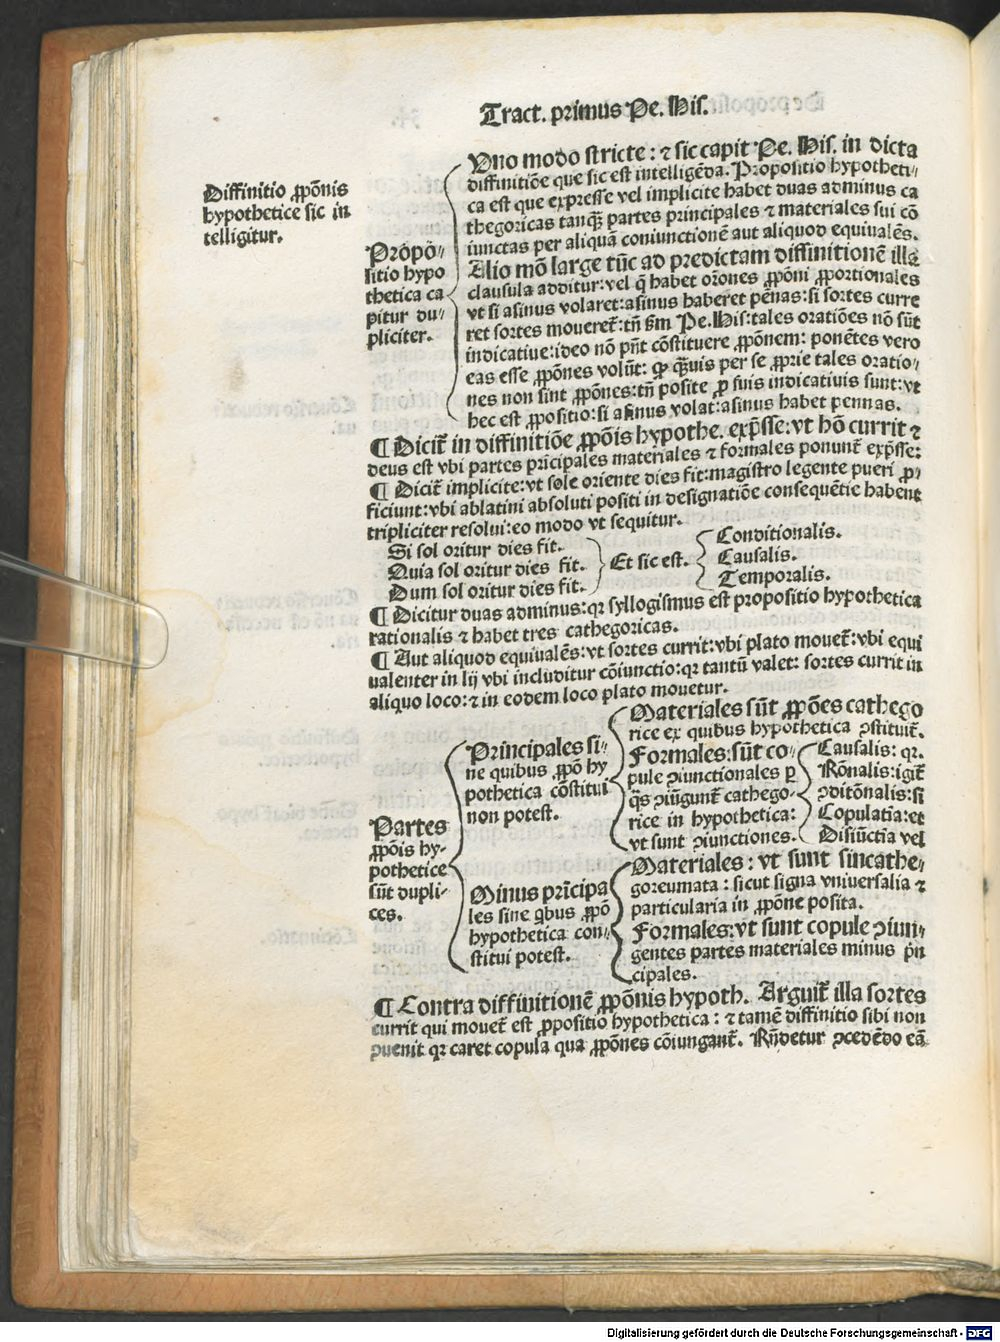 Tract. primus Pe. His.
Diffinitio ꝓpōnis
hypothetice sic in
telligitur.
Prōpō-
sitio hypo
thetica ca
pitur du-
pliciter.
Uno modo stricte: ⁊ sic capit Pe. His. in dicta
diffinitiōe que sic est intelligēda. Propositio hypotheti-
ca est que expresse vel implicite habet duas adminus ca
thegoricas tanqȝ partes principales ⁊ materiales sui cō
iunctas per aliquā coniunctionē aut aliquod equivalēs.
Alio mō large tūc ad predictam diffinitionē illa
clausula additur: vel q̄ habet orōnes ꝓpōni ꝓportionales
vt si asinus volaret: asinus haberet pēnas: si sortes curre
ret sortes moveret̄: tn̄ ẜm Pe. His: tales oratiōes nō sūt
indicatiue: ideo nō pn̄t cōstituere ꝓpōnem: ponētes vero
eas esse ꝓpōnes volūt: ꝙ qȝuis per se ꝓprie tales oratio-
nes non sint ꝓpōnes: tn̄ posite ꝓ suis indicatiuis sunt: vt
hec est ꝓpositio: si asinus volat: asinus habet pennas.
¶ Dicit̄ in diffinitiōe ꝓpōis hypothe. exp̄sse: vt hō currit ⁊
deus est vbi partes prīcipales materiales ⁊ formales ponunt̄ exp̄sse:
¶ Dicit̄ implicite: vt sole oriente dies fit: magistro legente pueri ꝓ-
ficiunt: vbi ablatini absoluti positi in designatiōe consequētie habent
tripliciter resolui: eo modo vt sequitur.
Si sol oritur dies fit.
Quia sol oritur dies fit.
Dum sol oritur dies fit.
Et sic est.
Conditionalis.
Causalis.
Temporalis.
¶ Dicitur duas adminus: qr syllogismus est propositio hypothetica
rationalis ⁊ habet tres cathegoricas.
¶ Aut aliquod equiualēs: vt sortes currit: vbi plato mouet̄: vbi equi
ualenter in lij vbi includitur cōiunctio: qr tantū valet: sortes currit in
aliquo loco: ⁊ in eodem loco plato mouetur.
Partes
ꝓpōis hy-
pothetice
sūt dupli-
ces.
Principales si-
ne quibus ꝓpō hy
pothetica cōstitui
non potest.
Materiales sūt ꝓpōes cathego
rice ex quibus hypothetica ꝯstituit̄.
Formales: sūt co-
pule ꝯiunctionales ꝑ
q̄s ꝯiūgunt̄ cathego-
rice in hypothetica:
vt sunt ꝯiunctiones.
Causalis: qr.
Rōnalis: igit̄
ꝯditōnalis: si
Copulatīa: et
Disiūctīa vel
Minus prīcipa
les sine qbus ꝓpō
hypothetica con-
stitui potest.
Materiales: vt sunt sincathe-
goreumata: sicut signa vniuersalia ⁊
particularia in ꝓpōne posita.
Formales: vt sunt copule ꝯiun-
gentes partes materiales minus p̄n
cipales.
¶ Contra diffinitionē ꝓpōnis hypoth. Arguit̄ illa sortes
currit qui mouet̄ est ꝓpositio hypothetica: ⁊ tamē diffinitio sibi non
ꝯuenit qr caret copula qua ꝓpōnes cōiungant̄. Rn̄detur ꝯcedēdo eā
Digitalisierung gefördert durch die Deutsche Forschungsgemeinschaft - DFG